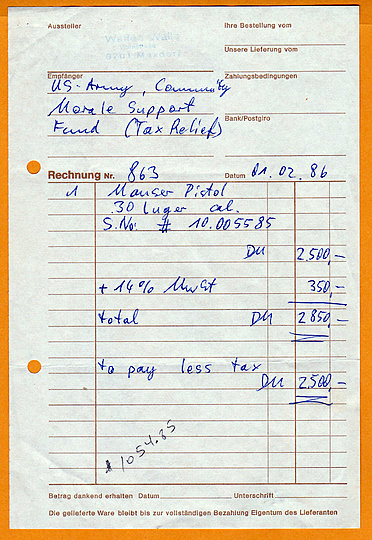 Aussteller
Ihre Bestellung vom
Unsere Lieferung vom
Empfänger
Zahlungsbedingungen
US-Army, Community
Morale Support
Bank/Postgiro
Fund (Tax Relief)
Rechnung Nr. 863 Datum 01.02.86
1 Mauser Pistol
.30 luger cal.
S.No: # 10.005585
DM 2.500,-
+ 14% MwSt 350,-
total DM 2.850,-
to pay less tax
DM 2.500,-
$ 1054.85
Betrag dankend erhalten Datum Unterschrift
Die gelieferte Ware bleibt bis zur vollständigen Bezahlung Eigentum des Lieferanten